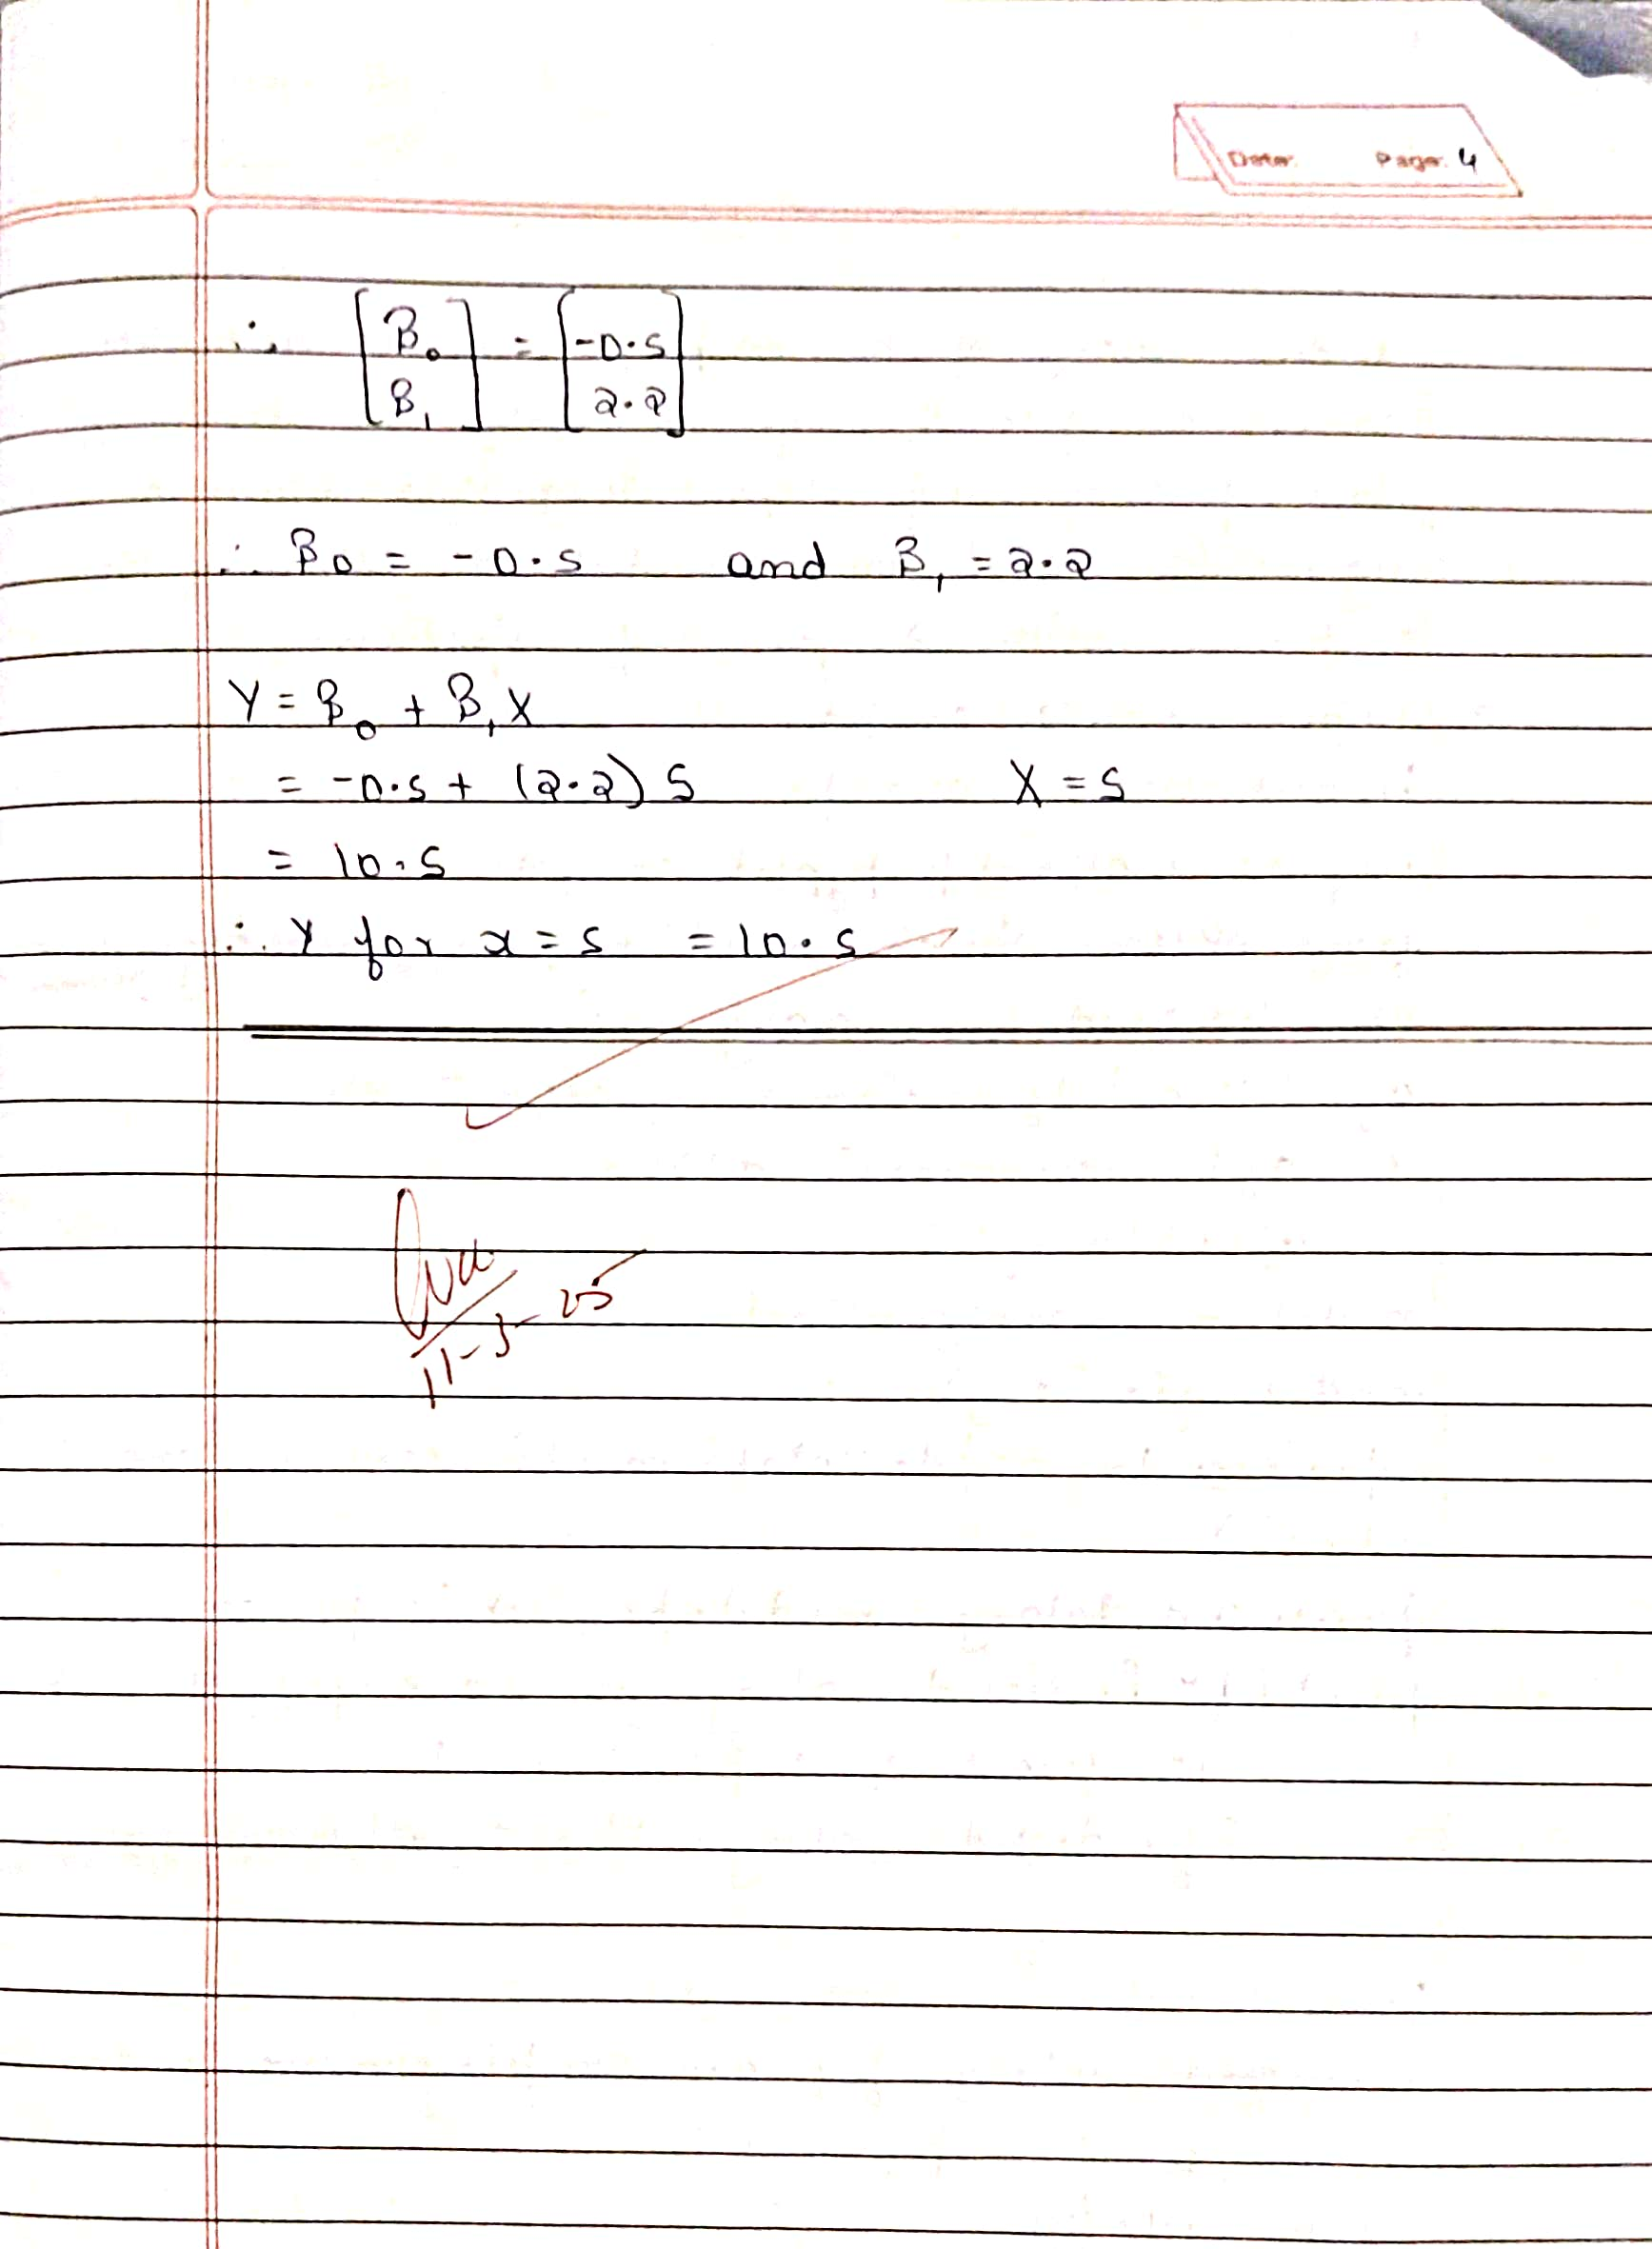 Date: Page: 4
∴ [B₀ B₁] = [-0.5 2.2]
∴ B₀ = -0.5 and B₁ = 2.2
Y = B₀ + B₁X
= -0.5 + (2.2) 5 X = 5
= 10.5
∴ Y for x = 5 = 10.5
11-3-25